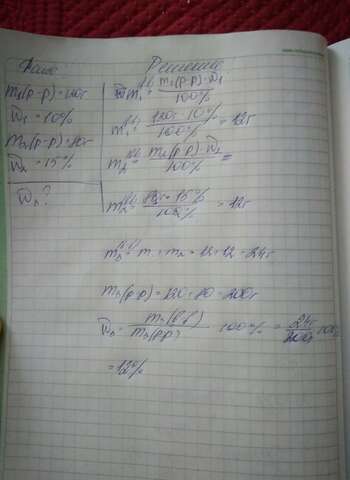 Дано:
Решение
m₁(р-р) = 120г
ω₁ = 10%
m₂(р-р) = 80г
ω₂ = 15%
ω₃?
m₁ = m₁(р-р)·ω₁ / 100%
m₁ = 120г·10% / 100% = 12г
m₂ = m₂(р-р)·ω₂ / 100% =
m₂ = ·15% / 100% = 12г
m₃ = m₁ + m₂ = 12+12 = 24г
m₃(р-р) = 120+80 = 200г
ω₃ = m₃(в-в) / m₃(р-р) · 100% = 24г / 200г · 100
= 12%